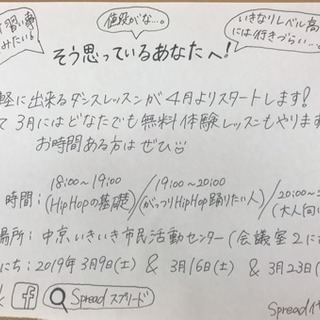 習い事
みたい!
値段がな…。
いきなりレベル高
には行きづらい…。
そう思っているあなたへ!
軽に出来るダンスレッスンが4月よりスタートします!
て3月にはどなたでも無料体験レッスンもやります
お時間ある方はぜひ
時間: 18:00~19:00 (HipHopの基礎) / 19:00~20:00 (がっつりHipHop踊りたい人) / 20:00~ (大人向け
場所: 中京いきいき市民活動センター(会議室2に
にち: 2019年3月9日(土) & 3月16日(土) & 3月23日(
Spread スプリード
Spread代